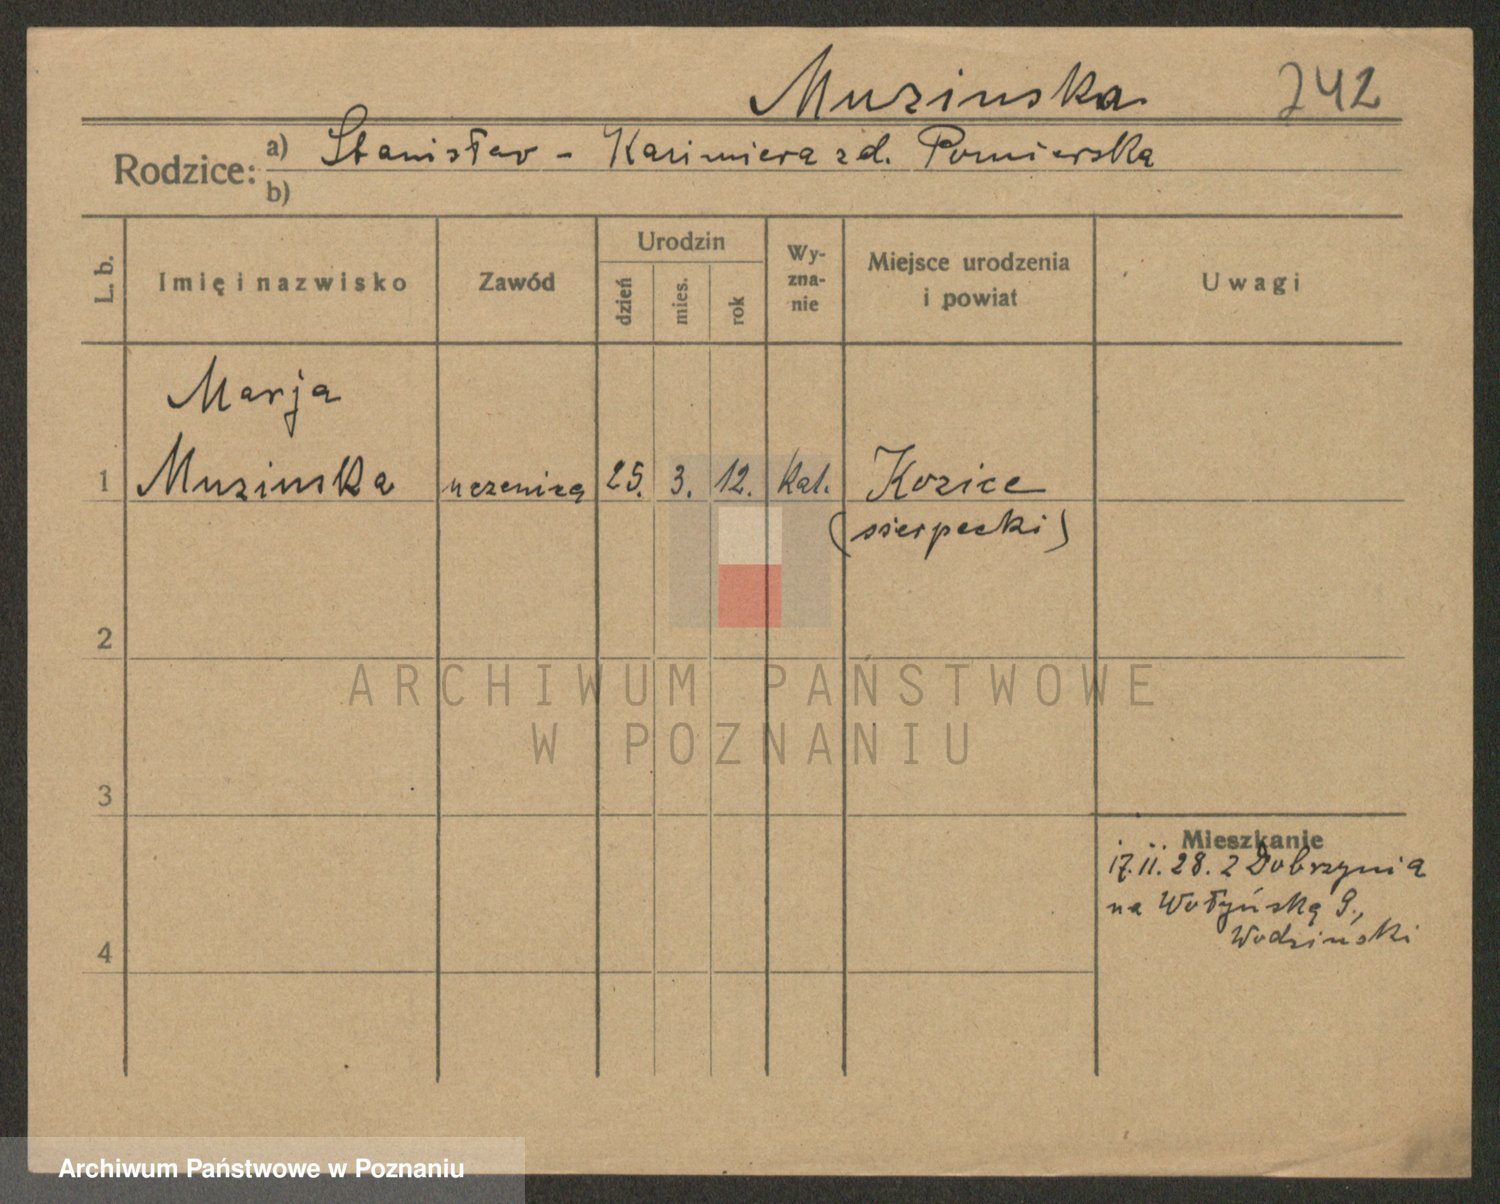 Muzinska 242
Rodzice: a) Stanisław - Kazimiera z d. Pomierska
b)
L. b.
Imię i nazwisko
Zawód
Urodzin
dzień
mies.
rok
Wy-
zna-
nie
Miejsce urodzenia
i powiat
Uwagi
Marja
1 Muzinska uczenica 25. 3. 12. kat. Kozice
(sierpecki)
2
ARCHIWUM PAŃSTWOWE
W POZNANIU
3
Mieszkanie
17.II.28. z Dobrzynia
na Wołyńską 9.,
Wodzinski
4
Archiwum Państwowe w Poznaniu